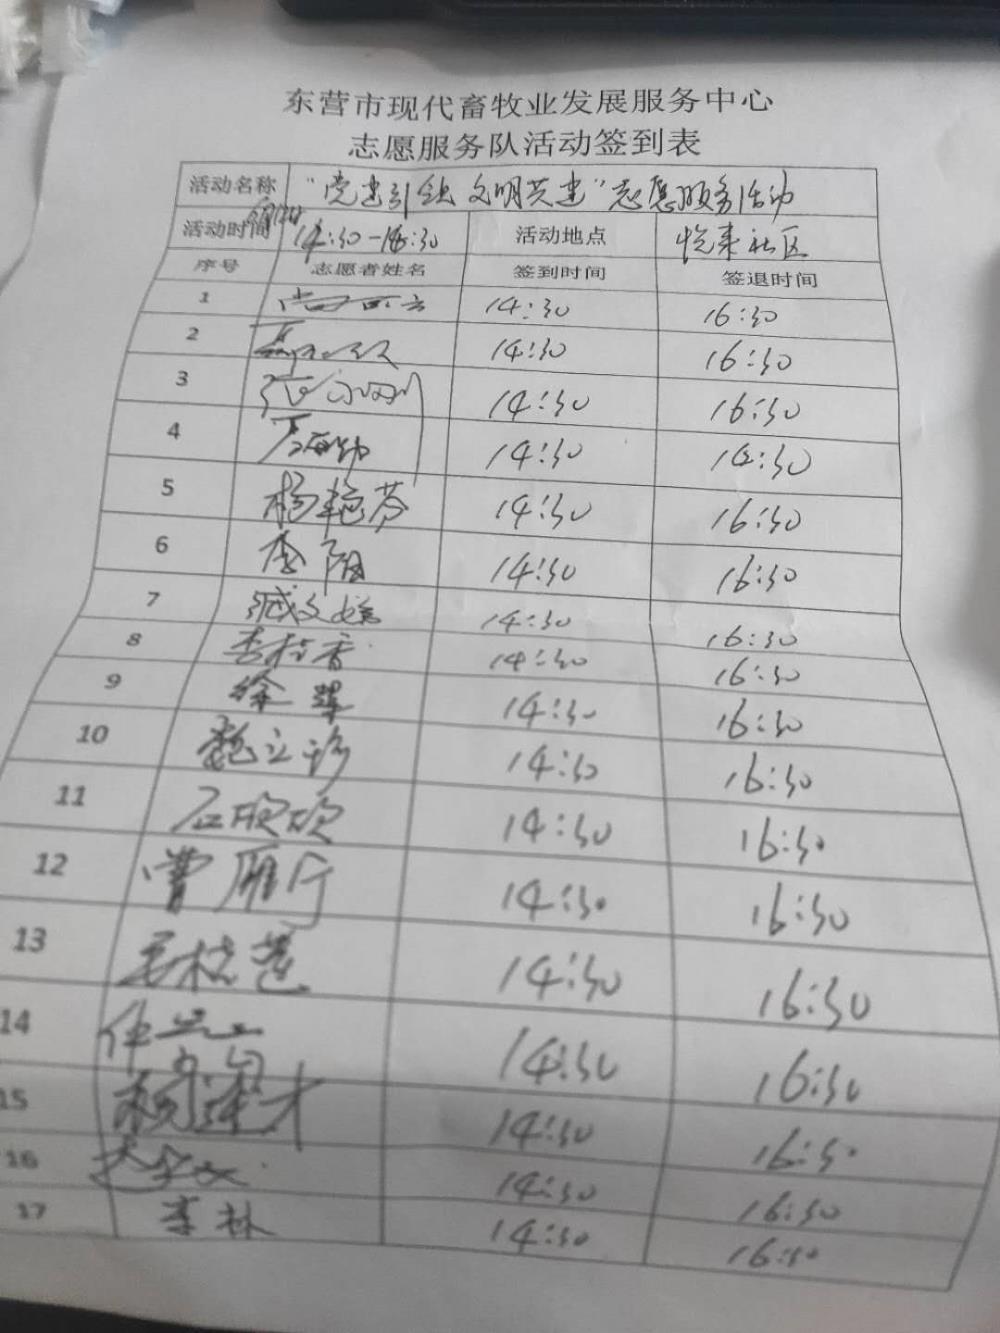 东营市现代畜牧业发展服务中心
志愿服务队活动签到表
活动名称 "党建引领 文明共建"志愿服务活动
活动时间 14:30-16:30 活动地点 悦来社区
序号 志愿者姓名 签到时间 签退时间
1 14:30 16:30
2 14:30 16:30
3 14:30 16:30
4 14:30 14:30
5 杨艳芬 14:30 16:30
6 李阳 14:30 16:30
7 臧文婷 14:30 16:30
8 李桂香 14:30 16:30
9 徐翠 14:30 16:30
10 魏立珍 14:30 16:30
11 石欣欣 14:30 16:30
12 曹雁行 14:30 16:30
13 14:30 16:30
14 14:30 16:30
15 14:30 16:30
16 14:30 16:30
17 李林 14:30 16:30